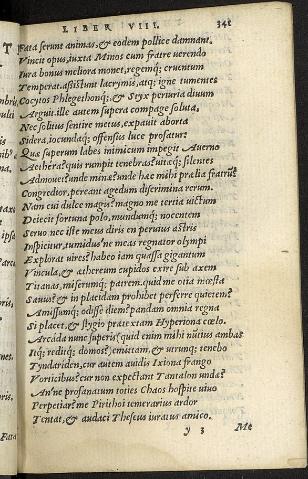 LIBER VIII. 341
Fata ferunt animas, & eodem pollice damnant.
Vincit opus, iuxta Minos cum fratre verendo
Iura bonus meliora monet, regemq; cruentum
Temperat, assistunt lacrymis, atq; igne tumentes
Cocytos Phlegethonq;, & Styx periuria diuum
Arguit. ille autem supera compage soluta,
Nec solitus sentire metus, expauit aborta
Sidera, iocundaq; offensus luce profatur:
Quæ superum labes inimicum impegit Auerno
Aethera? quis rumpit tenebras? uitæq; silentes
Admouet? unde minæ? unde hæc mihi prælia fratrũ?
Congredior, pereant agedum discrimina rerum.
Nam cui dulce magis? magno me tertia uictum
Deiecit fortuna polo, mundumq; nocentem
Seruo nec iste meus diris en peruius astris
Inspicitur, tumidus'ne meas regnator olympi
Explorat uires? habeo iam quassa gigantum
Vincula, & æthereum cupidos exire sub axem
Titanas, miserumq; patrem. quid me otia mœsta
Sæuus & in placidam prohibet perferre quietem?
Amissumq; odisse diem? pandam omnia regna
Si placet, & stygio prætexam Hyperiona cœlo.
Arcada nunc superis (quid enim mihi nũtius ambas
Itq; reditq; domos?) emittam, & utrunq; tenebo
Tyndariden, cur autem auidis Ixiona frango
Vorticibus? cur non expectant Tantalon undæ?
An'ne profanatum toties Chaos hospite uiuo
Perpetiar? me Pirithoi temerarius ardor
Tentat, & audaci Theseus iuratus amico.
y 3 Me